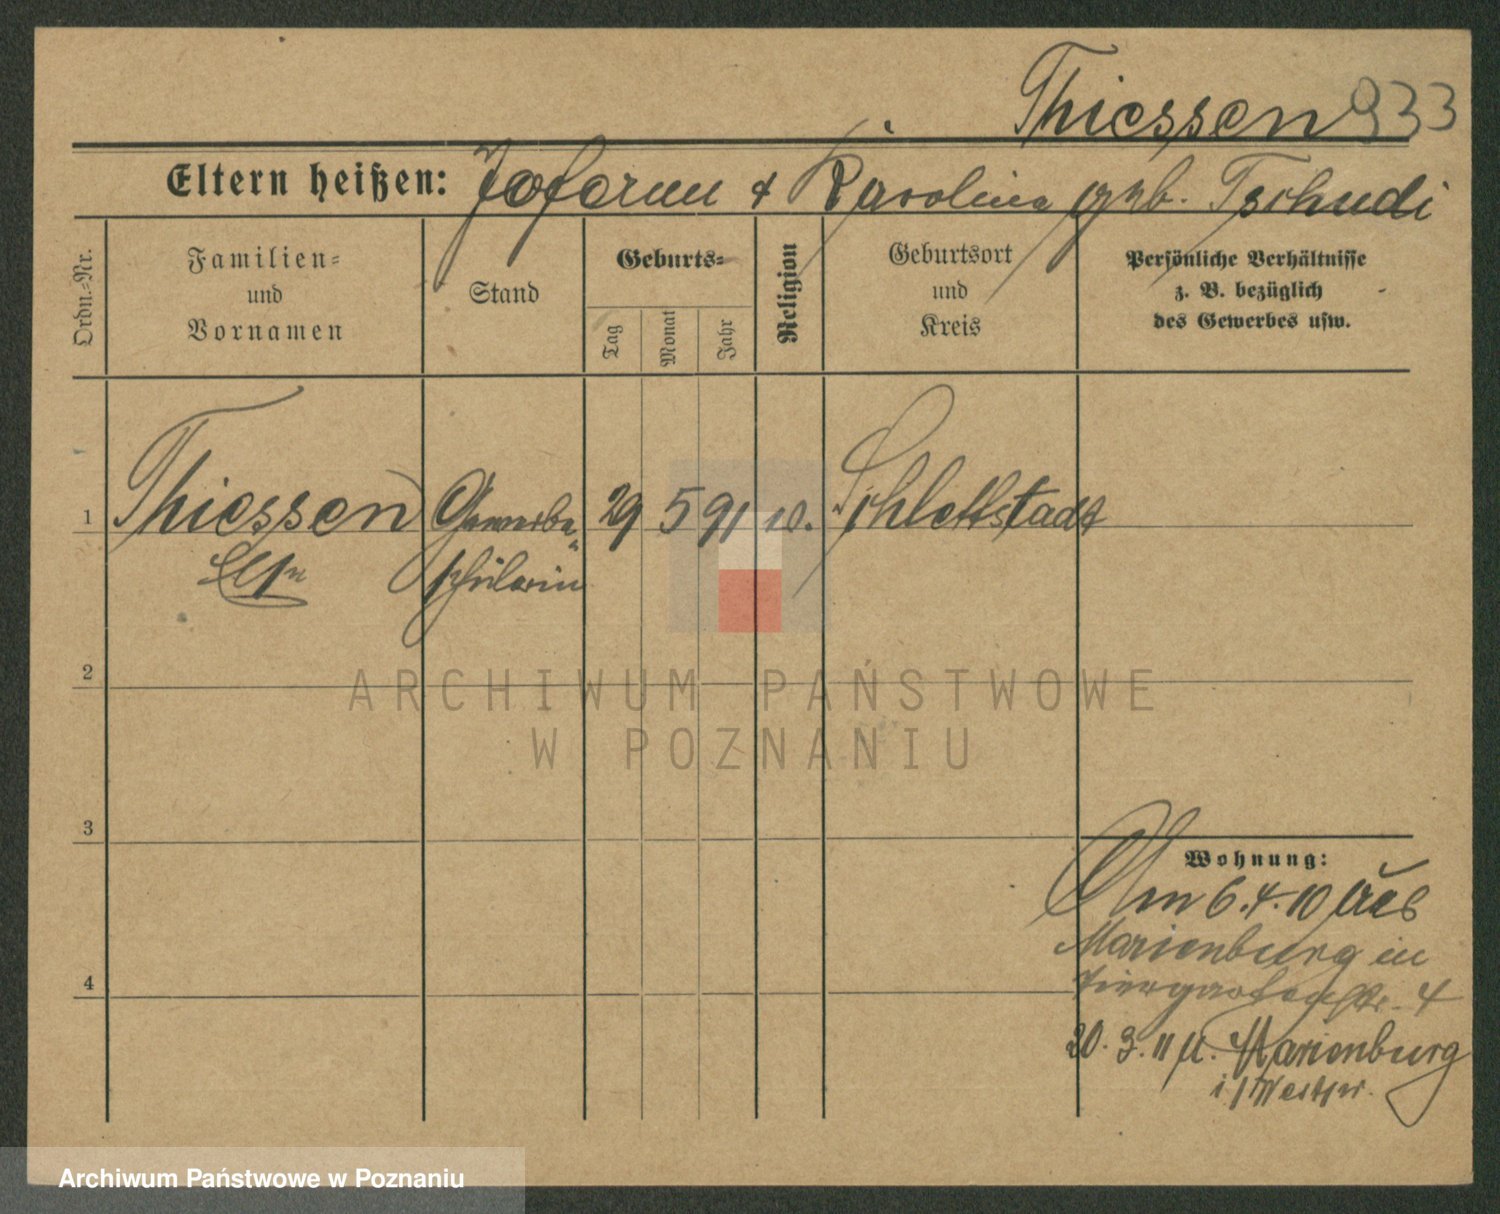 Thiessen 933
Eltern heißen: Johann & Karolina geb. Tschudi
Ordn.-Nr.
Familien-
und
Vornamen
Stand
Geburts-
Tag
Monat
Jahr
Religion
Geburtsort
und
Kreis
Persönliche Verhältnisse
z. B. bezüglich
des Gewerbes usw.
1
Thiessen Gewerbe- 29 5 91 Schlettstadt
Else schülerin
2
ARCHIWUM PAŃSTWOWE
W POZNANIU
3
Wohnung:
Am 6.4.10 aus
Marienburg in
Tiergartenstr. 4
20. 3. 11 n. Marienburg
i/Westpr.
4
Archiwum Państwowe w Poznaniu